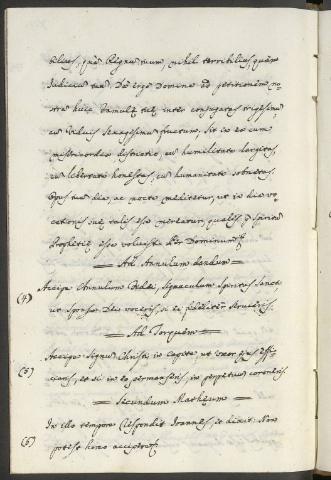 tilius, quam Regnum tuum, nihil terribilius, quam
Iudicium tuum. Da ergo Domine ad petitionem no-
stram huic Famulae tuae inter conjugatas trigesimum
cum Viduis sexagesimum fructum. Sit in ea cum
misericordia districtio, cum humilitate largitas,
cum libertate honestas, cum humanitate sobrietas.
Opus tuum die, ac nocte meditetur, ut in die vo-
cationis suae talis esse mereatur, quales per Spiritum
Prophetiae esse voluisti. Per Dominum
Ad Annulum dandum
(4) Accipe Annulum Fidei, signaculum Spiritus Sancti
ut sponsa Dei voceris, si ei fideliter servieris.
Ad Torquem
(5) Accipe signum Christi in capite ut uxor ejus effi-
ciaris, et si in eo permanseris, in perpetuum coroneris
Secundum Mathaeum
(6) In illo tempore Respondit Joannes, et dixit: Non
potest homo accipere